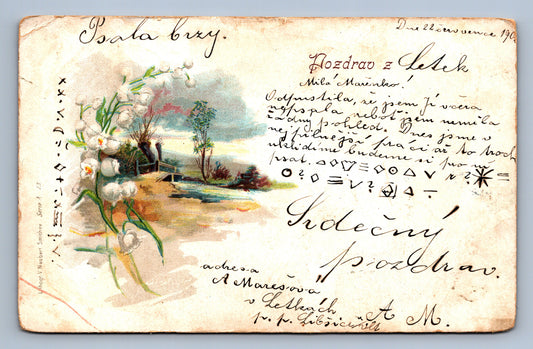 Psala brzy.
Dne 22 července 190
Pozdrav z Letek
Milá Mařenko!
Odpustila, že jsem jí včera
nepsala neboť jsem neměla
žádný pohled. Dnes jsme v
práci až to trochu
uklidíme budeme si po
psát.
Srdečný
pozdrav.
adresa
A Marešová
v Letkách
p. p. Libšice n/Vlt
A M.